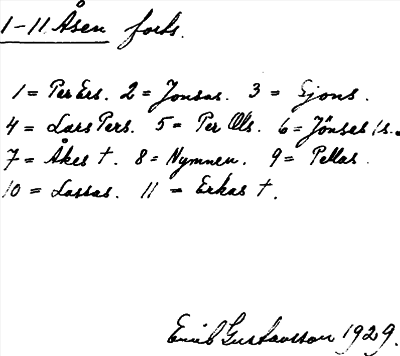 1-11 Åsen forts.
1 = Per Ers. 2 = Jonsas. 3 = Ejons.
4 = Lars Pers. 5 = Per Ols. 6 = Jönses
7 = Åkes † 8 = Nymnen. 9 = Pellas.
10 = Lassas. 11 = Erkas †.
Emil Gustavsson 1929.